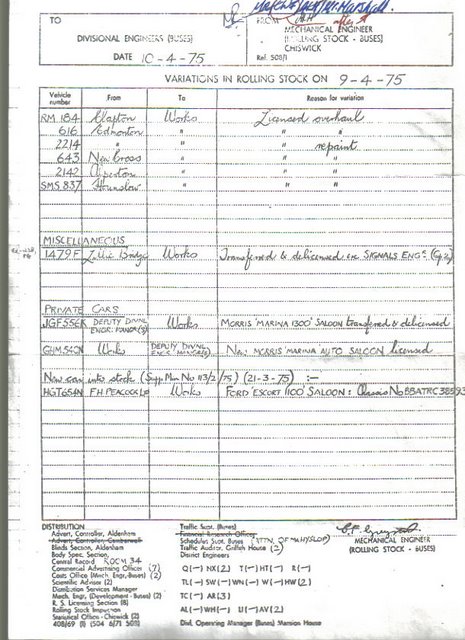 TO
FROM
DIVISIONAL ENGINEERS (BUSES)
MECHANICAL ENGINEER
(ROLLING STOCK - BUSES)
CHISWICK
DATE 10-4-75
Ref. 508/1
VARIATIONS IN ROLLING STOCK ON 9-4-75
Vehicle number From To Reason for variation
RM 184 Clapton Works Licensed overhaul
616 Edmonton " " "
2214 " " " repaint
643 New Cross " " "
2142 " " "
SMS 837 Hounslow " " "
MISCELLANEOUS
1479F Bridge Works Transferred & delicensed ex SIGNALS ENGR.
PRIVATE CARS
DEPUTY DIVNL ENGR. Works MORRIS 'MARINA 1300' SALOON transferred & delicensed
Works DEPUTY DIVNL New MORRIS MARINA AUTO SALOON licensed
New car into stock (Supp. Mem No 113/2/75) (21-3-75) :-
HGT 654N F.H PEACOCK Works FORD 'ESCORT 1100' SALOON: Chassis No
DISTRIBUTION
Advert. Controller, Aldenham
Advert. Controller, Camberwell
Blinds Section, Aldenham
Body Spec. Section,
Central Record ROOM 34
Commercial Advertising Officer (7)
Costs Office (Mech. Engr. Buses) (2)
Scientific Adviser (2)
Distribution Services Manager
Mech. Engr. (Development - Buses) (2)
R. S. Licensing Section (8)
Rolling Stock Inspection
Statistical Office - Chiswick (2)
408/69 (1) (504 6/71 508)
Traffic Supt. (Buses)
Financial Research Officer
Schedules Supt. Buses (ATTN. OF MR HYSLOP)
Traffic Auditor, Griffith House (2)
District Engineers
Q(—) NX(2) T(—) HT(—) R(—)
TL(—) SW(—) WN(—) W(—) HW(2)
TC(—) AR(3)
AL(—) WH(—) U(—) AV(2)
Divl. Operating Manager (Buses) Mansion House
MECHANICAL ENGINEER
(ROLLING STOCK - BUSES)